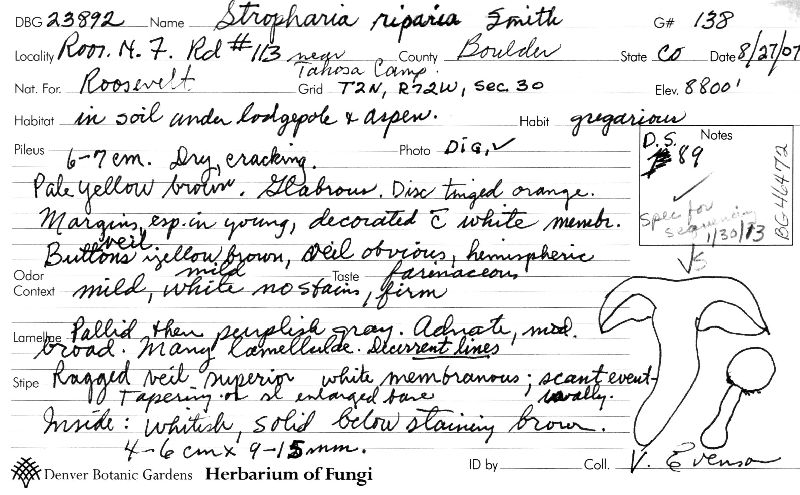 DBG 23892 Name Stropharia riparia Smith G# 138
Locality Roos. N. F. Rd #113 near Tahosa Camp. County Boulder State CO Date 8/27/07
Nat. For. Roosevelt Grid T2N, R72W, Sec. 30 Elev. 8800'
Habitat in soil under lodgepole & aspen. Habit gregarious
Pileus 6-7 cm. Dry, cracking. Photo DIG, ✓
Pale yellow brown. Glabrous. Disc tinged orange.
Margins, esp. in young, decorated c̄ white membr.
veil
Buttons yellow brown, veil obvious, hemispheric
Odor mild Taste farinaceous
Context mild, white no stains, firm
Lamellae Pallid then purplish gray. Adnate, mod.
broad. Many lamellulae. Decurrent lines
Stipe Ragged veil superior white membranous; scant event-
Tapering or sl enlarged base ually.
Inside: whitish, solid below staining brown.
4-6 cm x 9-15 mm.
Notes
D.S.
89
✓
Spec for
sequencing
1/30/13
BG46472
VS
Denver Botanic Gardens Herbarium of Fungi ID by Coll. V. Evenson